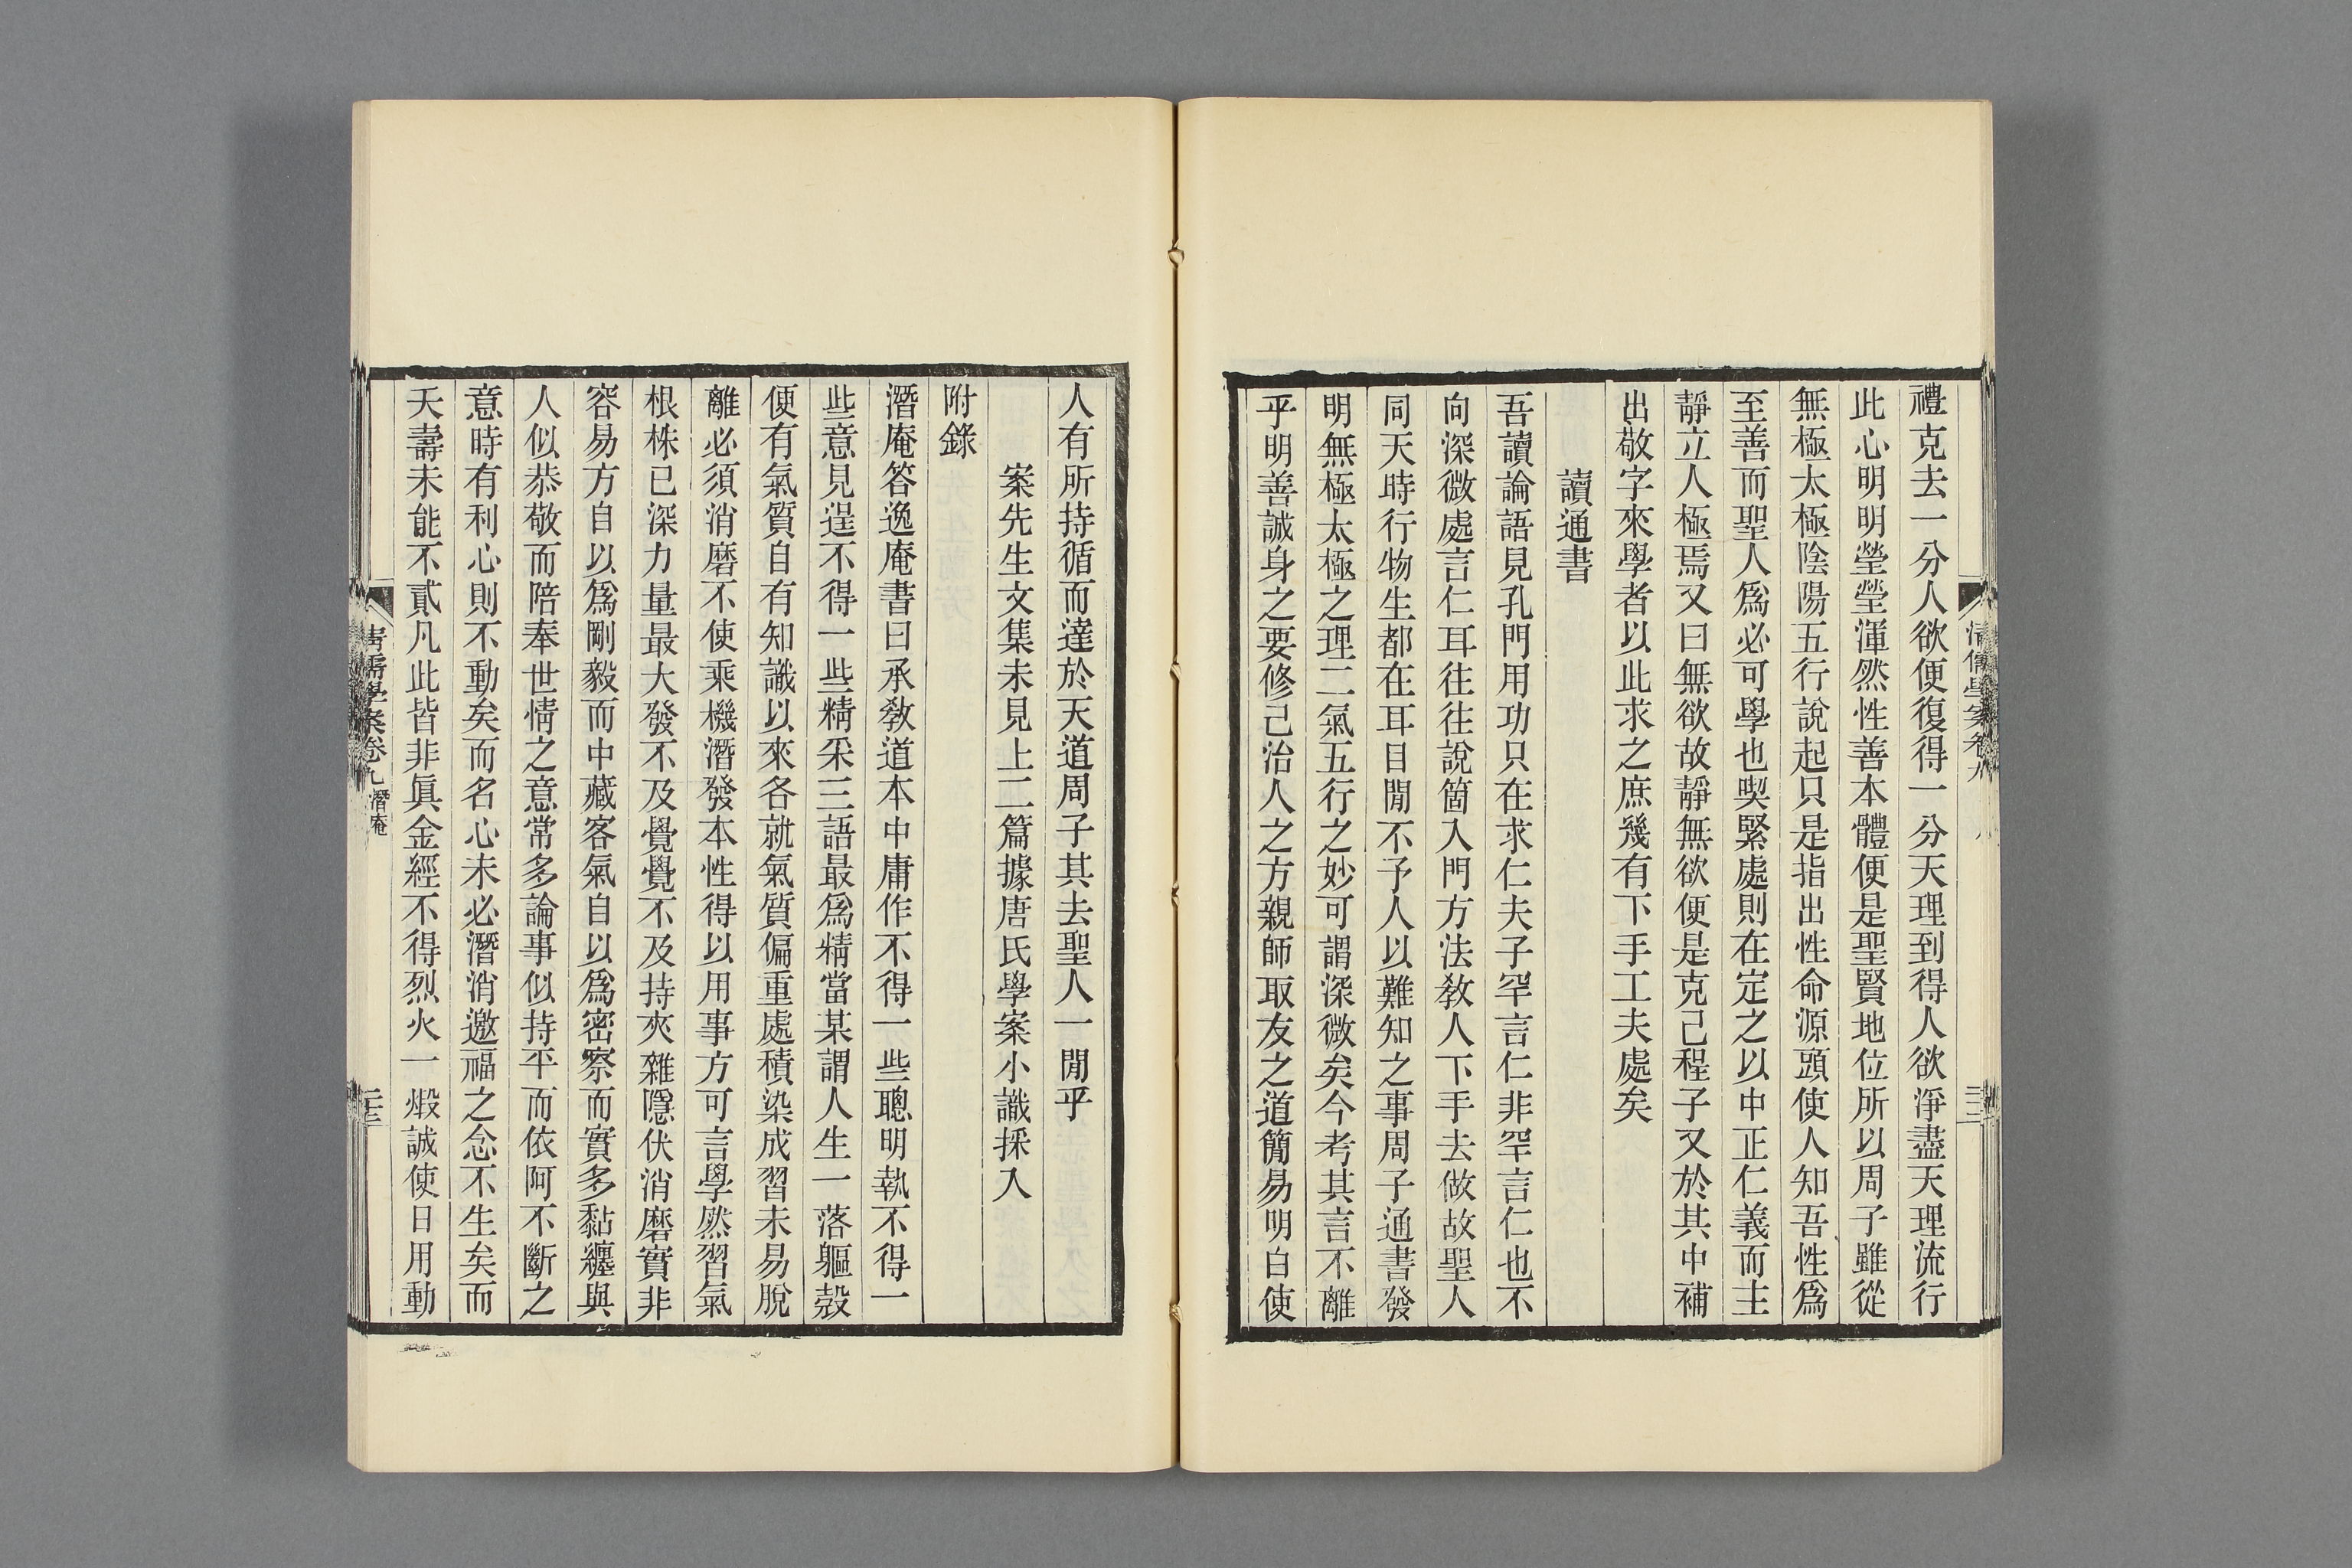 禮克去一分人欲便復得一分天理到得人欲淨盡天理流行
此心明明瑩瑩渾然性善本體便是聖賢地位所以周子雖從
無極太極陰陽五行說起只是指出性命源頭使人知吾性爲
至善而聖人爲必可學也喫緊處則在定之以中正仁義而主
靜立人極焉又曰無欲故靜無欲便是克己程子又於其中補
出敬字來學者以此求之庶幾有下手工夫處矣
讀通書
吾讀論語見孔門用功只在求仁夫子罕言仁非罕言仁也不
向深微處言仁耳往往說箇入門方法敎人下手去做故聖人
同天時行物生都在耳目閒不予人以難知之事周子通書發
明無極太極之理二氣五行之妙可謂深微矣今考其言不離
乎明善誠身之要修己治人之方親師取友之道簡易明白使
清儒學案卷九
人有所持循而達於天道周子其去聖人一閒乎
案先生文集未見上二篇據唐氏學案小識採入
附錄
潛庵答逸庵書曰承敎道本中庸作不得一些聰明執不得一
些意見逞不得一些精采三語最爲精當某謂人生一落軀殼
便有氣質自有知識以來各就氣質偏重處積染成習未易脫
離必須消磨不使乘機潛發本性得以用事方可言學然習氣
根株已深力量最大發不及覺覺不及持夾雜隱伏消磨實非
容易方自以爲剛毅而中藏客氣自以爲密察而實多黏纏與
人似恭敬而陪奉世情之意常多論事似持平而依阿不斷之
意時有利心則不動矣而名心未必潛消邀福之念不生矣而
夭壽未能不貳凡此皆非眞金經不得烈火一煅誠使日用動
清儒學案卷九 潛庵